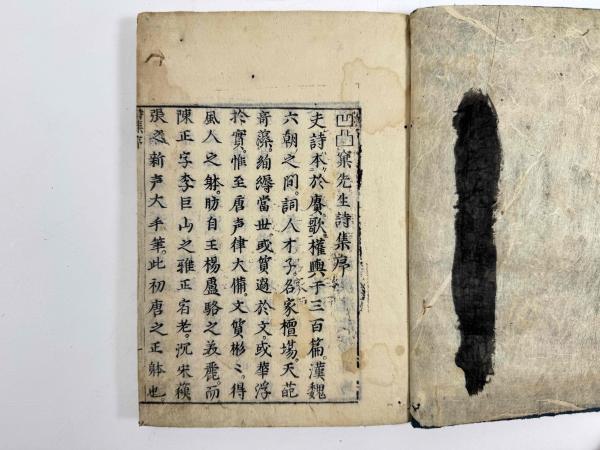 凹凸窠先生詩集序
夫詩本於賡歌權輿于三百篇。漢魏
六朝之間。詞人才子。各家檀場。天葩
奇藻。絢縟當世。或質過於文。或華浮
於實。惟至唐声律大備。文質彬〻。得
風人之躰。昉自王楊盧駱之美麗。而
陳正字李巨山之雅正宕老。沉宋蘓
張之新声大手筆。此初唐之正躰也。
詩集序